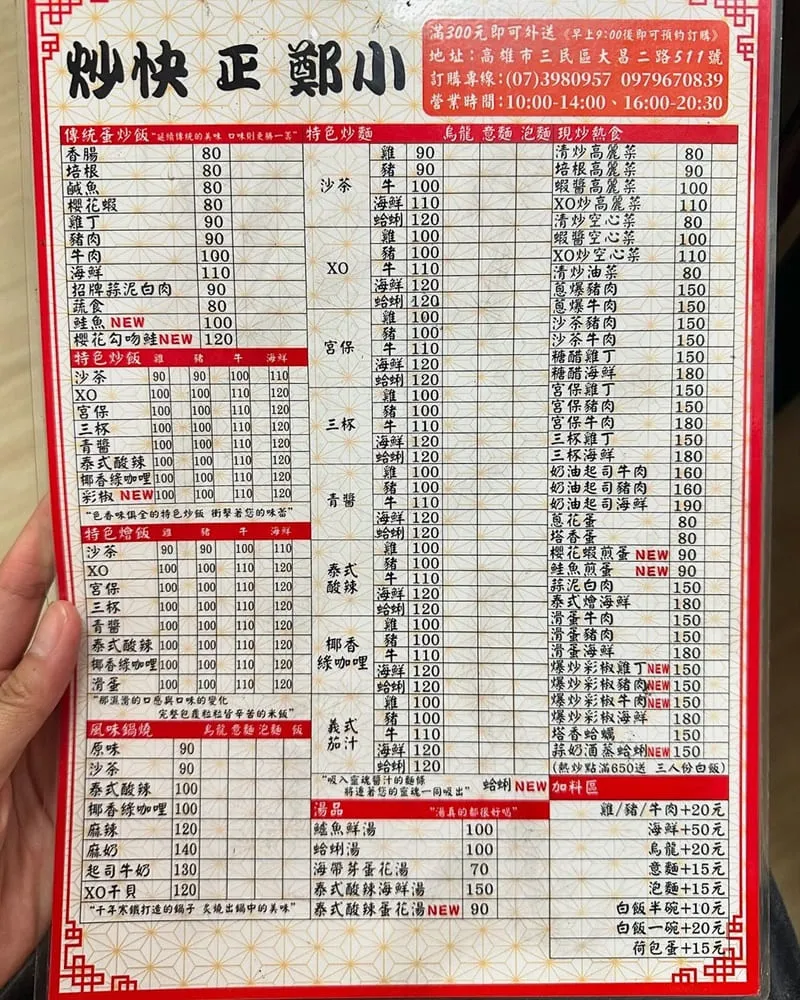 炒快正鄭小
滿300元即可外送《早上9:00後即可預約訂購》
地址:高雄市三民區大昌二路511號
訂購專線:(07)3980957 0979670839
營業時間:10:00-14:00、16:00-20:30
傳統蛋炒飯 "延續傳統的美味 口味則更勝一籌"
香腸 80
培根 80
鹹魚 80
櫻花蝦 80
雞丁 90
豬肉 90
牛肉 100
海鮮 110
招牌蒜泥白肉 90
蔬食 80
鮭魚 NEW 100
櫻花勾吻鮭NEW 120
特色炒飯 雞 豬 牛 海鮮
沙茶 90 90 100 110
XO 100 100 110 120
宮保 100 100 110 120
三杯 100 100 110 120
青醬 100 100 110 120
泰式酸辣 100 100 110 120
椰香綠咖哩 100 100 110 120
彩椒 NEW 100 100 110 120
"色香味俱全的特色炒飯 衝擊著您的味蕾"
特色燴飯 雞 豬 牛 海鮮
沙茶 90 90 100 110
XO 100 100 110 120
宮保 100 100 110 120
三杯 100 100 110 120
青醬 100 100 110 120
泰式酸辣 100 100 110 120
椰香綠咖哩 100 100 110 120
滑蛋 100 100 110 120
"那濕滑的口感與口味的變化
完整包覆粒粒皆辛苦的米飯"
風味鍋燒 烏龍 意麵 泡麵 飯
原味 90
沙茶 90
泰式酸辣 100
椰香綠咖哩 100
麻辣 120
麻奶 140
起司牛奶 130
XO干貝 120
"千年寒鐵打造的鍋子 炙燒出鍋中的美味"
特色炒麵 烏龍 意麵 泡麵
沙茶
雞 90
豬 90
牛 100
海鮮 110
蛤蜊 120
XO
雞 100
豬 100
牛 110
海鮮 120
蛤蜊 120
宮保
雞 100
豬 100
牛 110
海鮮 120
蛤蜊 120
三杯
雞 100
豬 100
牛 110
海鮮 120
蛤蜊 120
青醬
雞 100
豬 100
牛 110
海鮮 120
蛤蜊 120
泰式
酸辣
雞 100
豬 100
牛 110
海鮮 120
蛤蜊 120
椰香
綠咖哩
雞 100
豬 100
牛 110
海鮮 120
蛤蜊 120
義式
茄汁
雞 100
豬 100
牛 110
海鮮 120
蛤蜊 120
"吸入靈魂醬汁的麵條
將連著您的靈魂一同吸出" 蛤蜊 NEW
湯品 "湯真的都很好喝"
鱸魚鮮湯 100
蛤蜊湯 100
海帶芽蛋花湯 70
泰式酸辣海鮮湯 150
泰式酸辣蛋花湯NEW 90
現炒熱食
清炒高麗菜 80
培根高麗菜 90
蝦醬高麗菜 100
XO炒高麗菜 110
清炒空心菜 80
蝦醬空心菜 100
XO炒空心菜 110
清炒油菜 80
蔥爆豬肉 150
蔥爆牛肉 150
沙茶豬肉 150
沙茶牛肉 150
糖醋雞丁 150
糖醋海鮮 180
宮保雞丁 150
宮保豬肉 150
宮保牛肉 180
三杯雞丁 150
三杯海鮮 180
奶油起司牛肉 160
奶油起司豬肉 160
奶油起司海鮮 190
蔥花蛋 80
塔香蛋 80
櫻花蝦煎蛋 NEW 90
鮭魚煎蛋 NEW 90
蒜泥白肉 150
泰式燴海鮮 180
滑蛋牛肉 150
滑蛋豬肉 150
滑蛋海鮮 180
爆炒彩椒雞丁NEW 150
爆炒彩椒豬肉NEW 150
爆炒彩椒牛肉NEW 150
爆炒彩椒海鮮 180
塔香蛤蠣 150
蒜奶酒蒸蛤蜊NEW 150
(熱炒點滿650送 三人份白飯)
加料區
雞/豬/牛肉+20元
海鮮+50元
烏龍+20元
意麵+15元
泡麵+15元
白飯半碗+10元
白飯一碗+20元
荷包蛋+15元